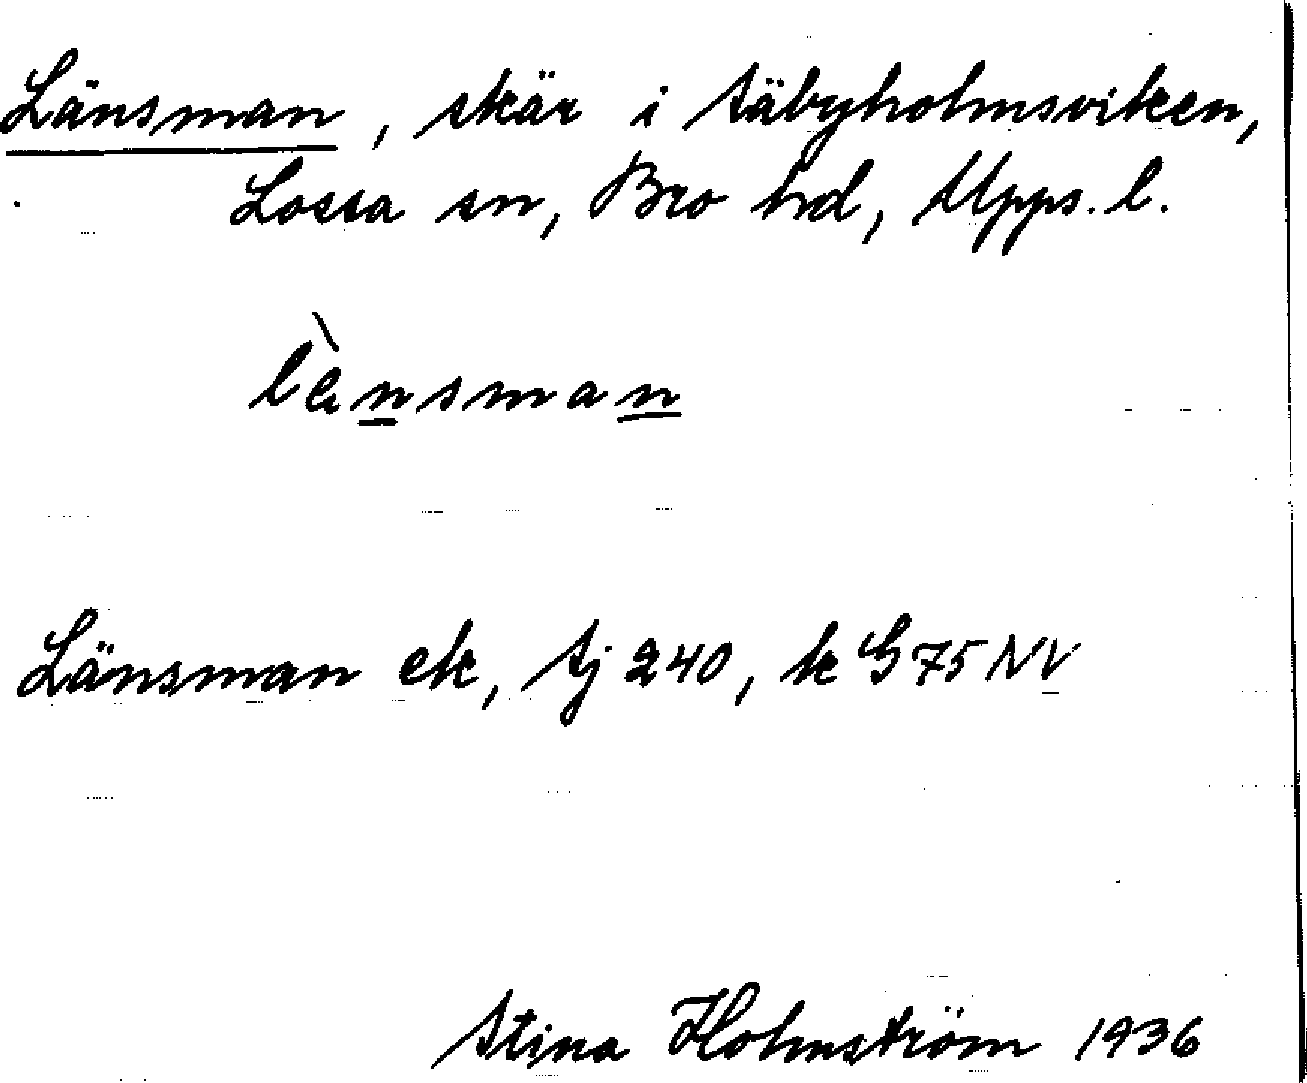 Länsman, skär i Säbyholmsviken,
Lossa sn, Bro hd, Upps. l.
lènsman
Länsman ek, Sj 240, k G 75 NV
Stina Holmström 1936